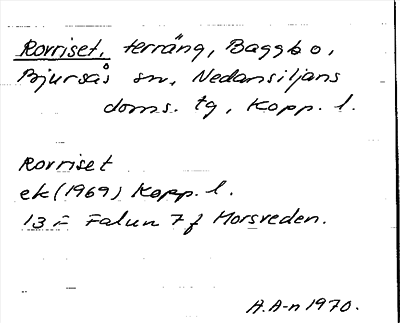 Rorriset, terräng, Baggbo,
Bjursås sn, Nedansiljans
doms. tg, Kopp. l.
Rorriset
ek (1969) Kopp. l.
13 F Falun 7 f Morsveden.
A.A-n 1970.